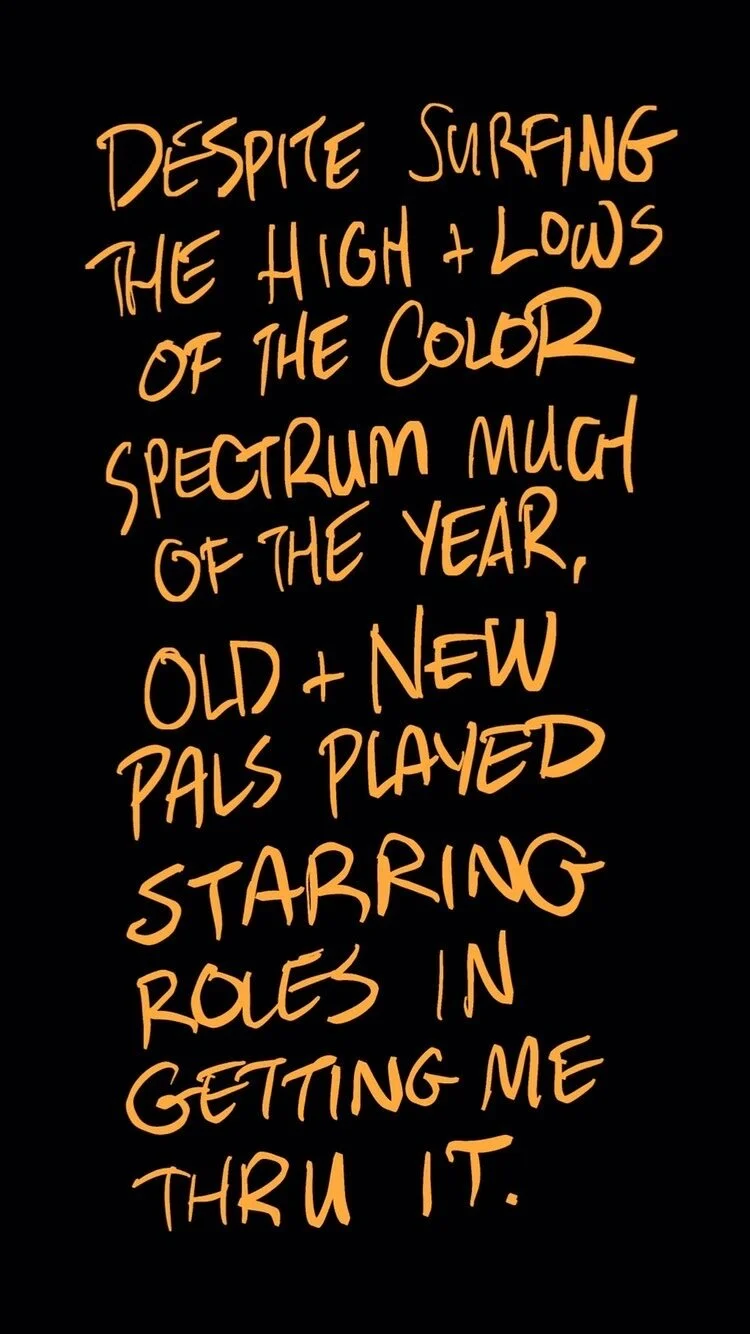 DESPITE SURFING
THE HIGH + LOWS
OF THE COLOR
SPECTRUM MUCH
OF THE YEAR,
OLD + NEW
PALS PLAYED
STARRING
ROLES IN
GETTING ME
THRU IT.